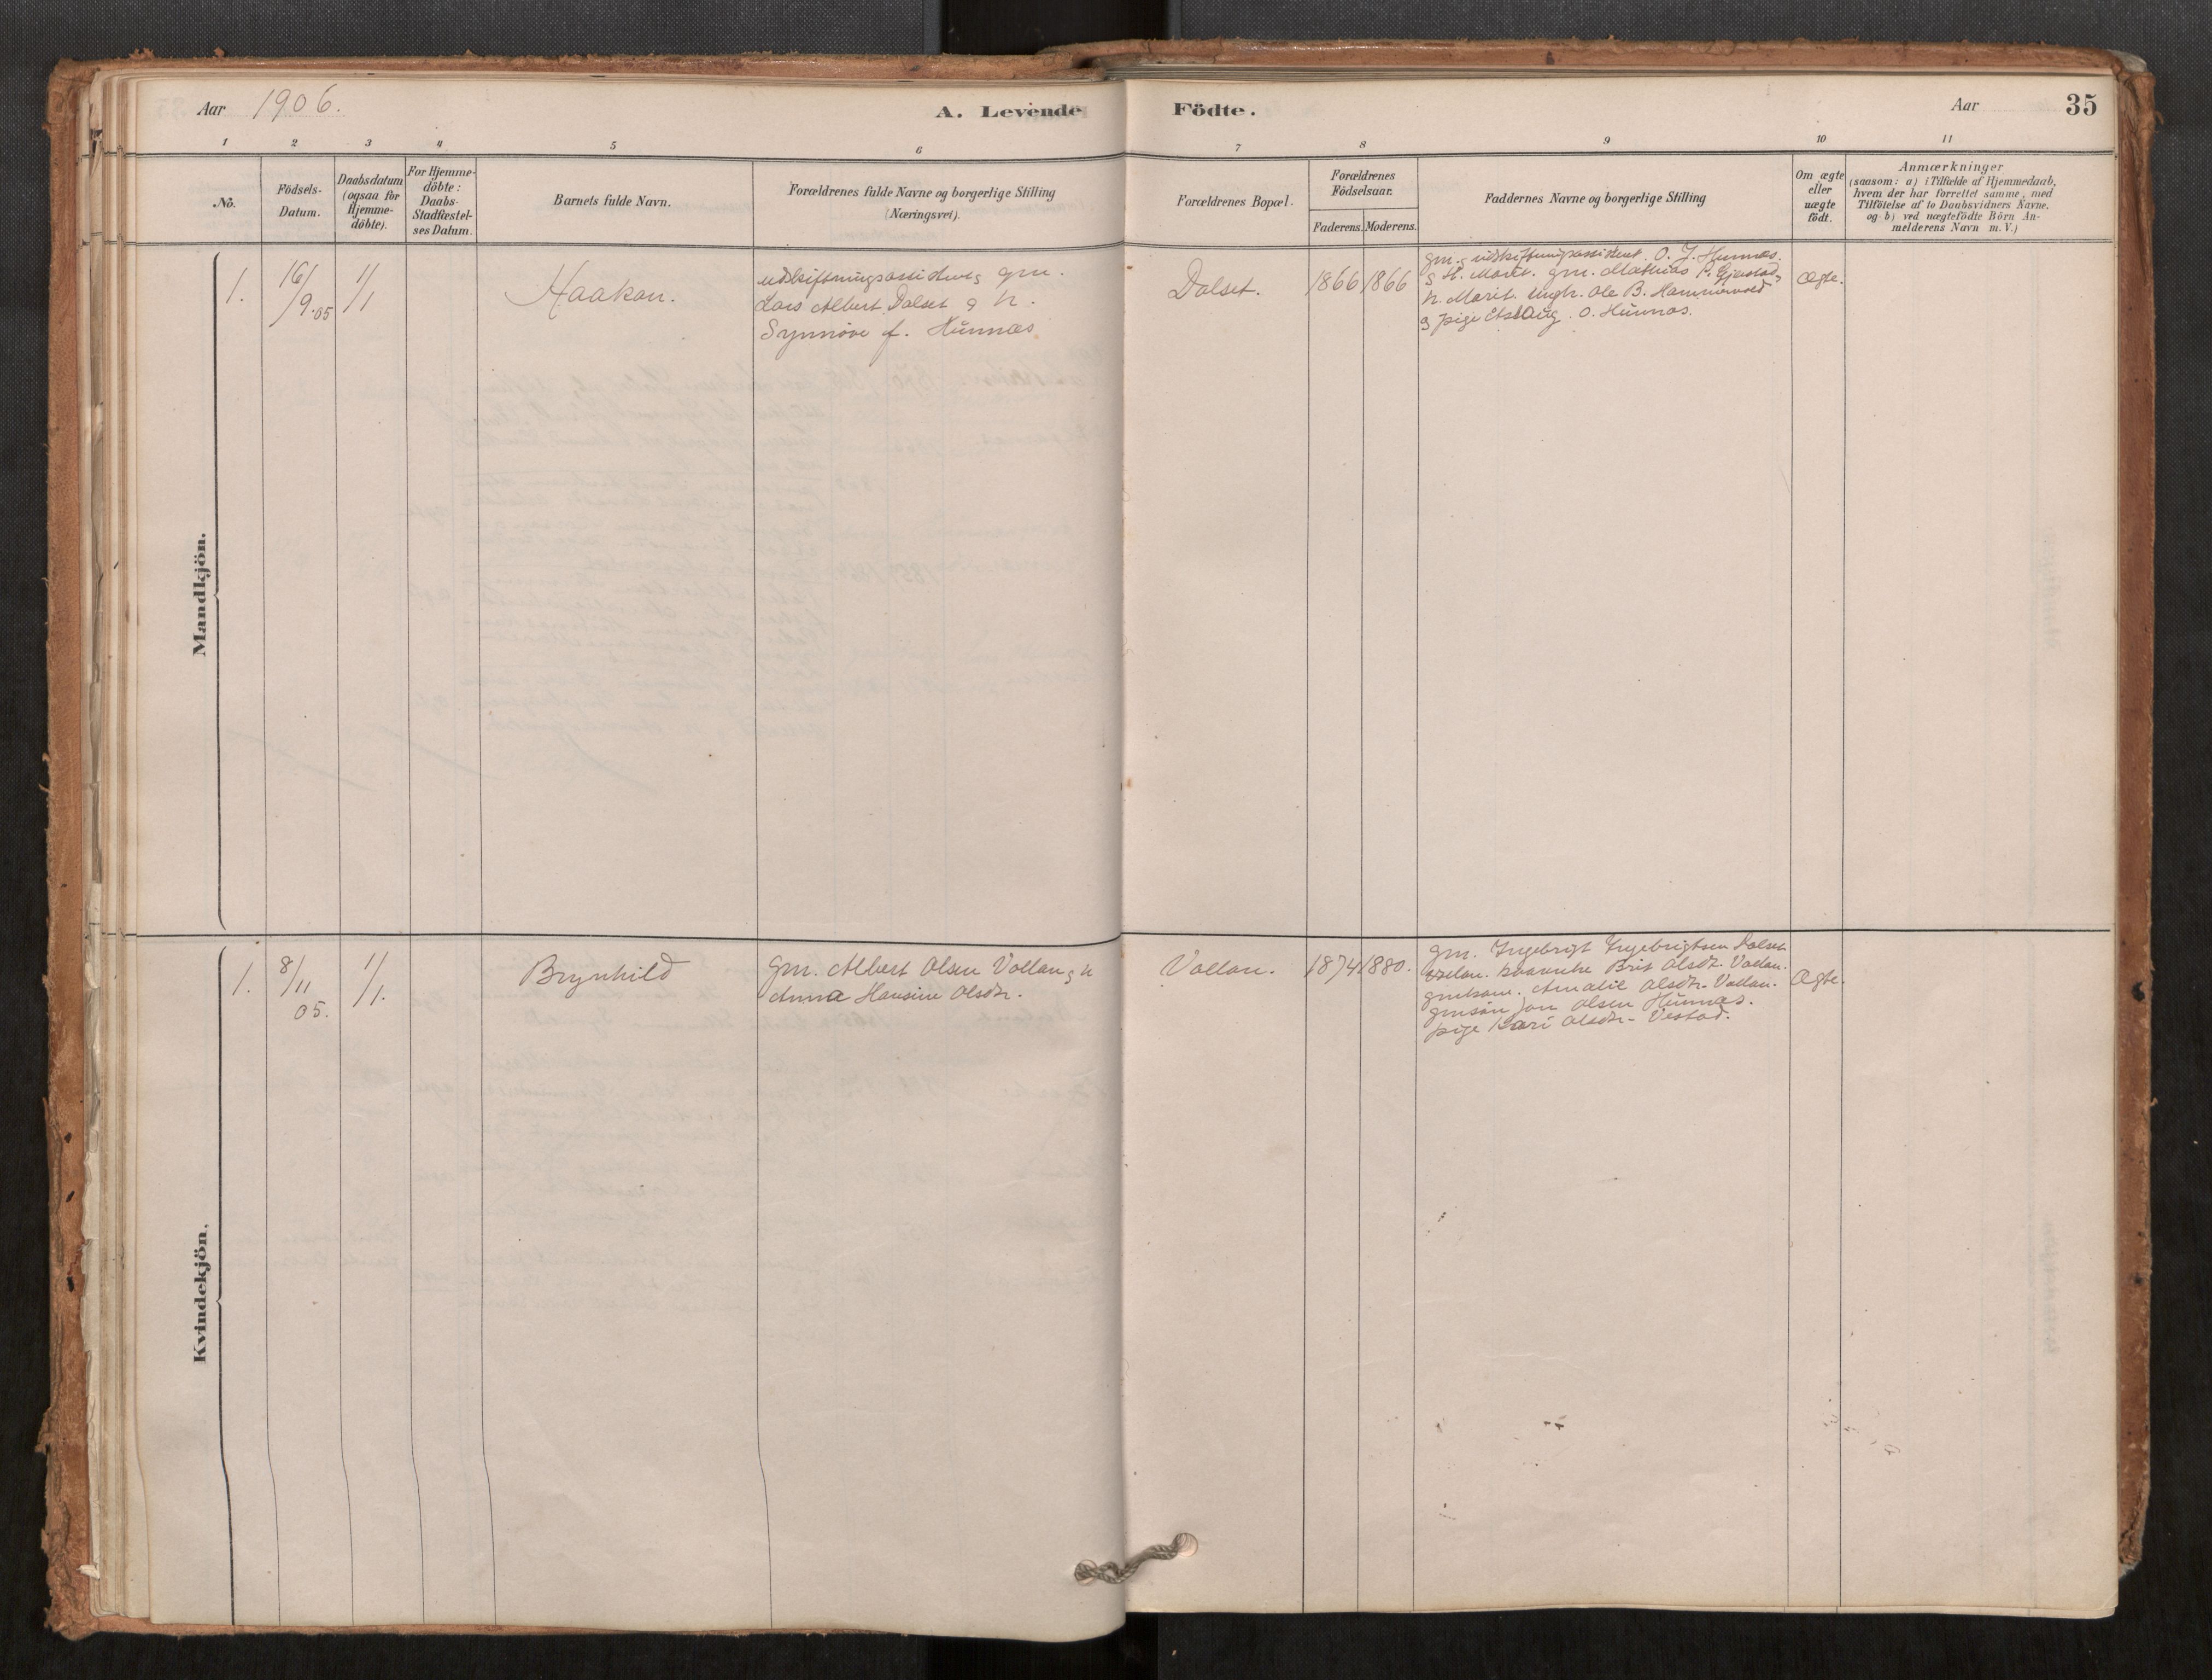 Aar 1906.
A. Levende Födte.
Aar
35
1 2 3 4 5 6 7 8 9 10 11
No.
Födsels-
Datum.
Daabsdatum
(ogsaa for
Hjemme-
döbte).
For Hjemme-
döbte:
Daabs-
Stadfæstel-
ses Datum.
Barnets fulde Navn.
Forældrenes fulde Navne og borgerlige Stilling
(Næringsvei).
Forældrenes Bopæl.
Forældrenes
Födselsaar.
Faderens. Moderens.
Faddernes Navne og borgerlige Stilling
Om ægte
eller
uægte
födt.
Anmærkninger
(saasom: a) i Tilfælde af Hjemmedaab,
hvem der har forrettet samme, med
Tilföielse af to Daabsvidners Navne,
og b) ved uægtefödte Börn An-
melderens Navn m. V.)
Mandkjön.
1.
16/
/9.05
1/
/1
Haakon.
udskiftningsassistent, gm.
Lars Albert Dalset og h.
Synnöve f. Hunnæs
Dalset.
1866 1866
gm. og udskiftningsassistent O. J. Hunnæs.
og h. Marit. gm. Mathias P. Gjerstad,
h. Marit. Ungk. Ole B. Hammervold
og pige Aslaug O. Hunnæs.
Ægte.
Kvindekjön.
1.
8/
/11
05.
1/
/1.
Brynhild
Gm. Albert Olsen Vollan og h
Anna Hansine Olsdtr.
Vollan.
1874 1880.
gm. Ingebrigt Ingebrigtsen Dalset
Brit Olsdtr. Vollan.
Amalie Olsdtr. Vollan.
gmsön Jon Olsen Hunnæs.
pige Kari Olsdtr. Vestad.
Ægte.